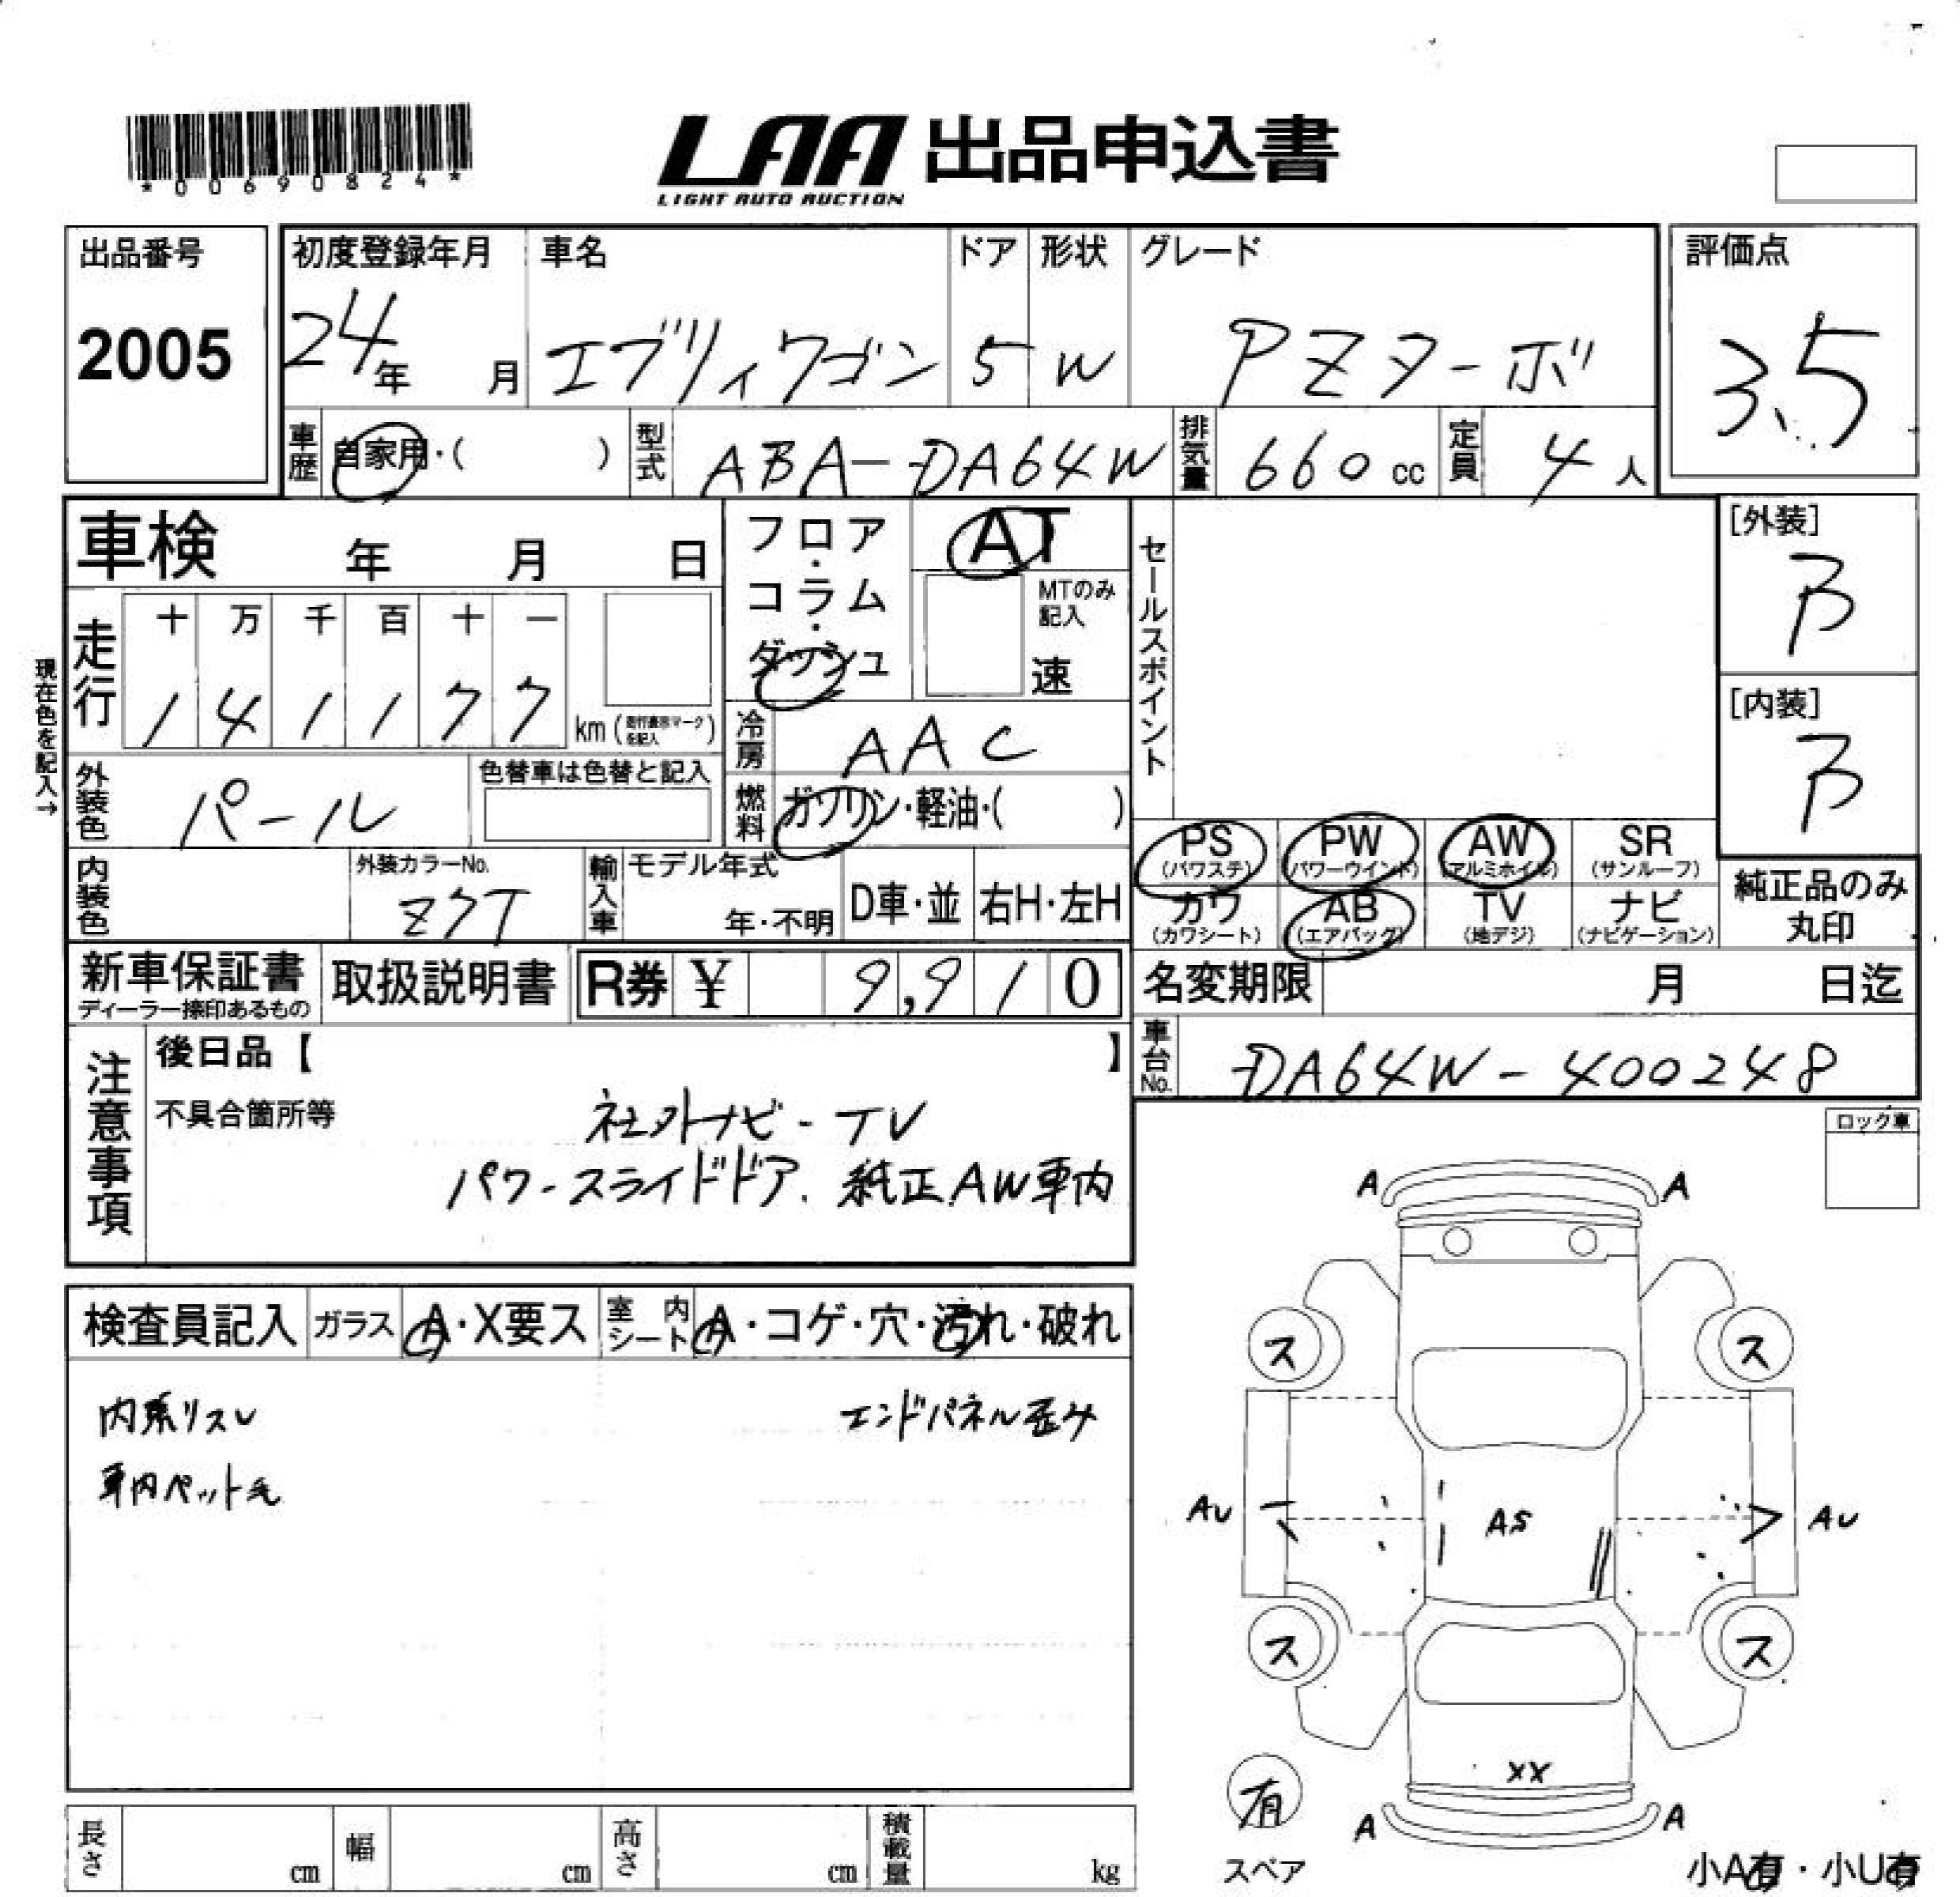 *00690824*
LAA 出品申込書
LIGHT AUTO AUCTION
出品番号
2005
初度登録年月
24年 月
車名
エブリィワゴン
ドア
5
形状
W
グレード
PZターボ
評価点
3.5
車歴 自家用・( )
型式 ABA-DA64W
排気量 660 cc
定員 4 人
車検 年 月 日
フロア・コラム・ダッシュ
AT
MTのみ記入
速
セールスポイント
[外装]
B
[内装]
B
現在色を記入→
走行
十 万 千 百 十 一
1 4 1 1 7 7
km (走行表示マークを記入)
冷房 AAC
外装色 パール
色替車は色替と記入
燃料 ガソリン・軽油・( )
PS (パワステ)
PW (パワーウインド)
AW (アルミホイル)
SR (サンルーフ)
カワ (カワシート)
AB (エアバック)
TV (地デジ)
ナビ (ナビゲーション)
純正品のみ丸印
内装色
外装カラーNo.
Z7T
輸入車
モデル年式
年・不明
D車・並
右H・左H
新車保証書
ディーラー捺印あるもの
取扱説明書
R券 ¥ 9,910
名変期限 月 日迄
車台No. DA64W-400248
注意事項
後日品【 】
不具合箇所等
社外ナビ-TV
パワースライドドア. 純正AW車内
ロック車
検査員記入
ガラス A・X要ス
室内シート A・コゲ・穴・汚れ・破れ
内張りスレ
エンドパネル歪み
車内ペット毛
A A
ス ス
AU AS AU
ス ス
XX
A A
有
スペア
小A有・小U有
長さ cm
幅 cm
高さ cm
積載量 kg